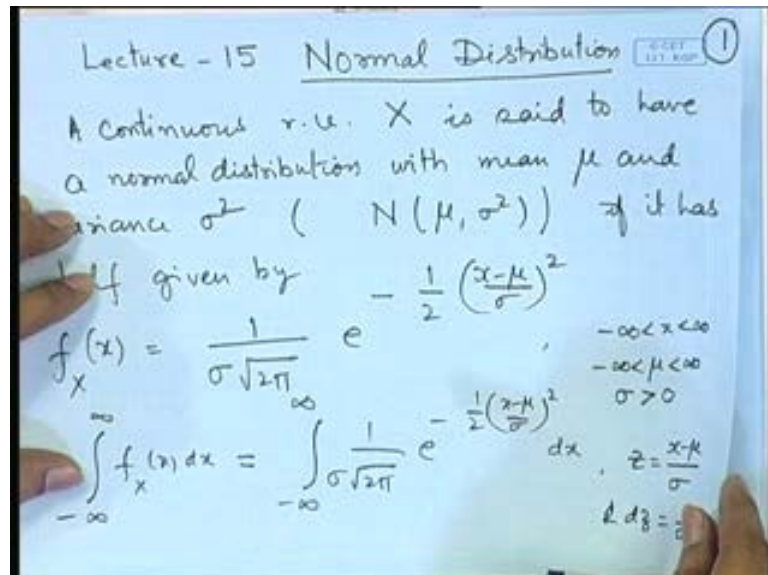 Lecture - 15 Normal Distribution ①
A continuous r.v. X is said to have
a normal distribution with mean μ and
variance σ² ( N(μ, σ²)) if it has
pdf given by
f_X(x) = 1/(σ√2π) e^{-1/2 ((x-μ)/σ)²} , -∞<x<∞
-∞<μ<∞
σ>0
∫_{-∞}^{∞} f_X(x) dx = ∫_{-∞}^{∞} 1/(σ√2π) e^{-1/2 ((x-μ)/σ)²} dx , z = (x-μ)/σ
dz =